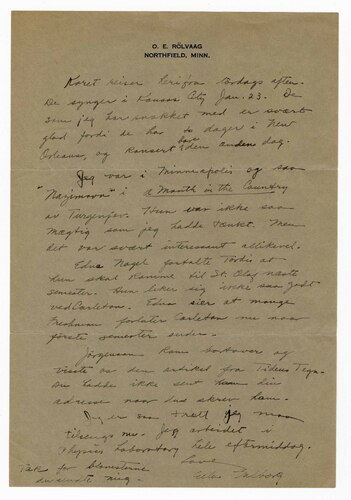 O. E. RÖLVAAG
NORTHFIELD, MINN.
Koret reiser herifra torsdags aften.
De synger i Kansas City Jan. 23. De
som jeg har snakket med er svært
glad fordi de har to dager i New
Orleans, og konsert bare den anden dag.
Jeg var i Minneapolis og saa
"Nazimova" i A Month in the Country
av Turgenjev. Hun var ikke saa
mægtig som jeg hadde tænkt. Men
det var svært interessant allikevel.
Edna Nagel fortalte Tordis at
hun skal komme til St. Olaf næste
semester. Hun liker sig ikke saa godt
ved Carleton. Edna sier at mange
Freshman forlater Carleton nu naar
første semester ender.
Jørgensen kom bortover og
viste os den artikel fra Tidens Tegn.
Du hadde ikke sent ham din
adresse naar du skrev ham.
Jeg er saa træt jeg maa
tilsengs nu. Jeg arbeidet i
Physics Laboratory hele eftermiddag.
Love
Takk for blomsterne
du sendte mig.